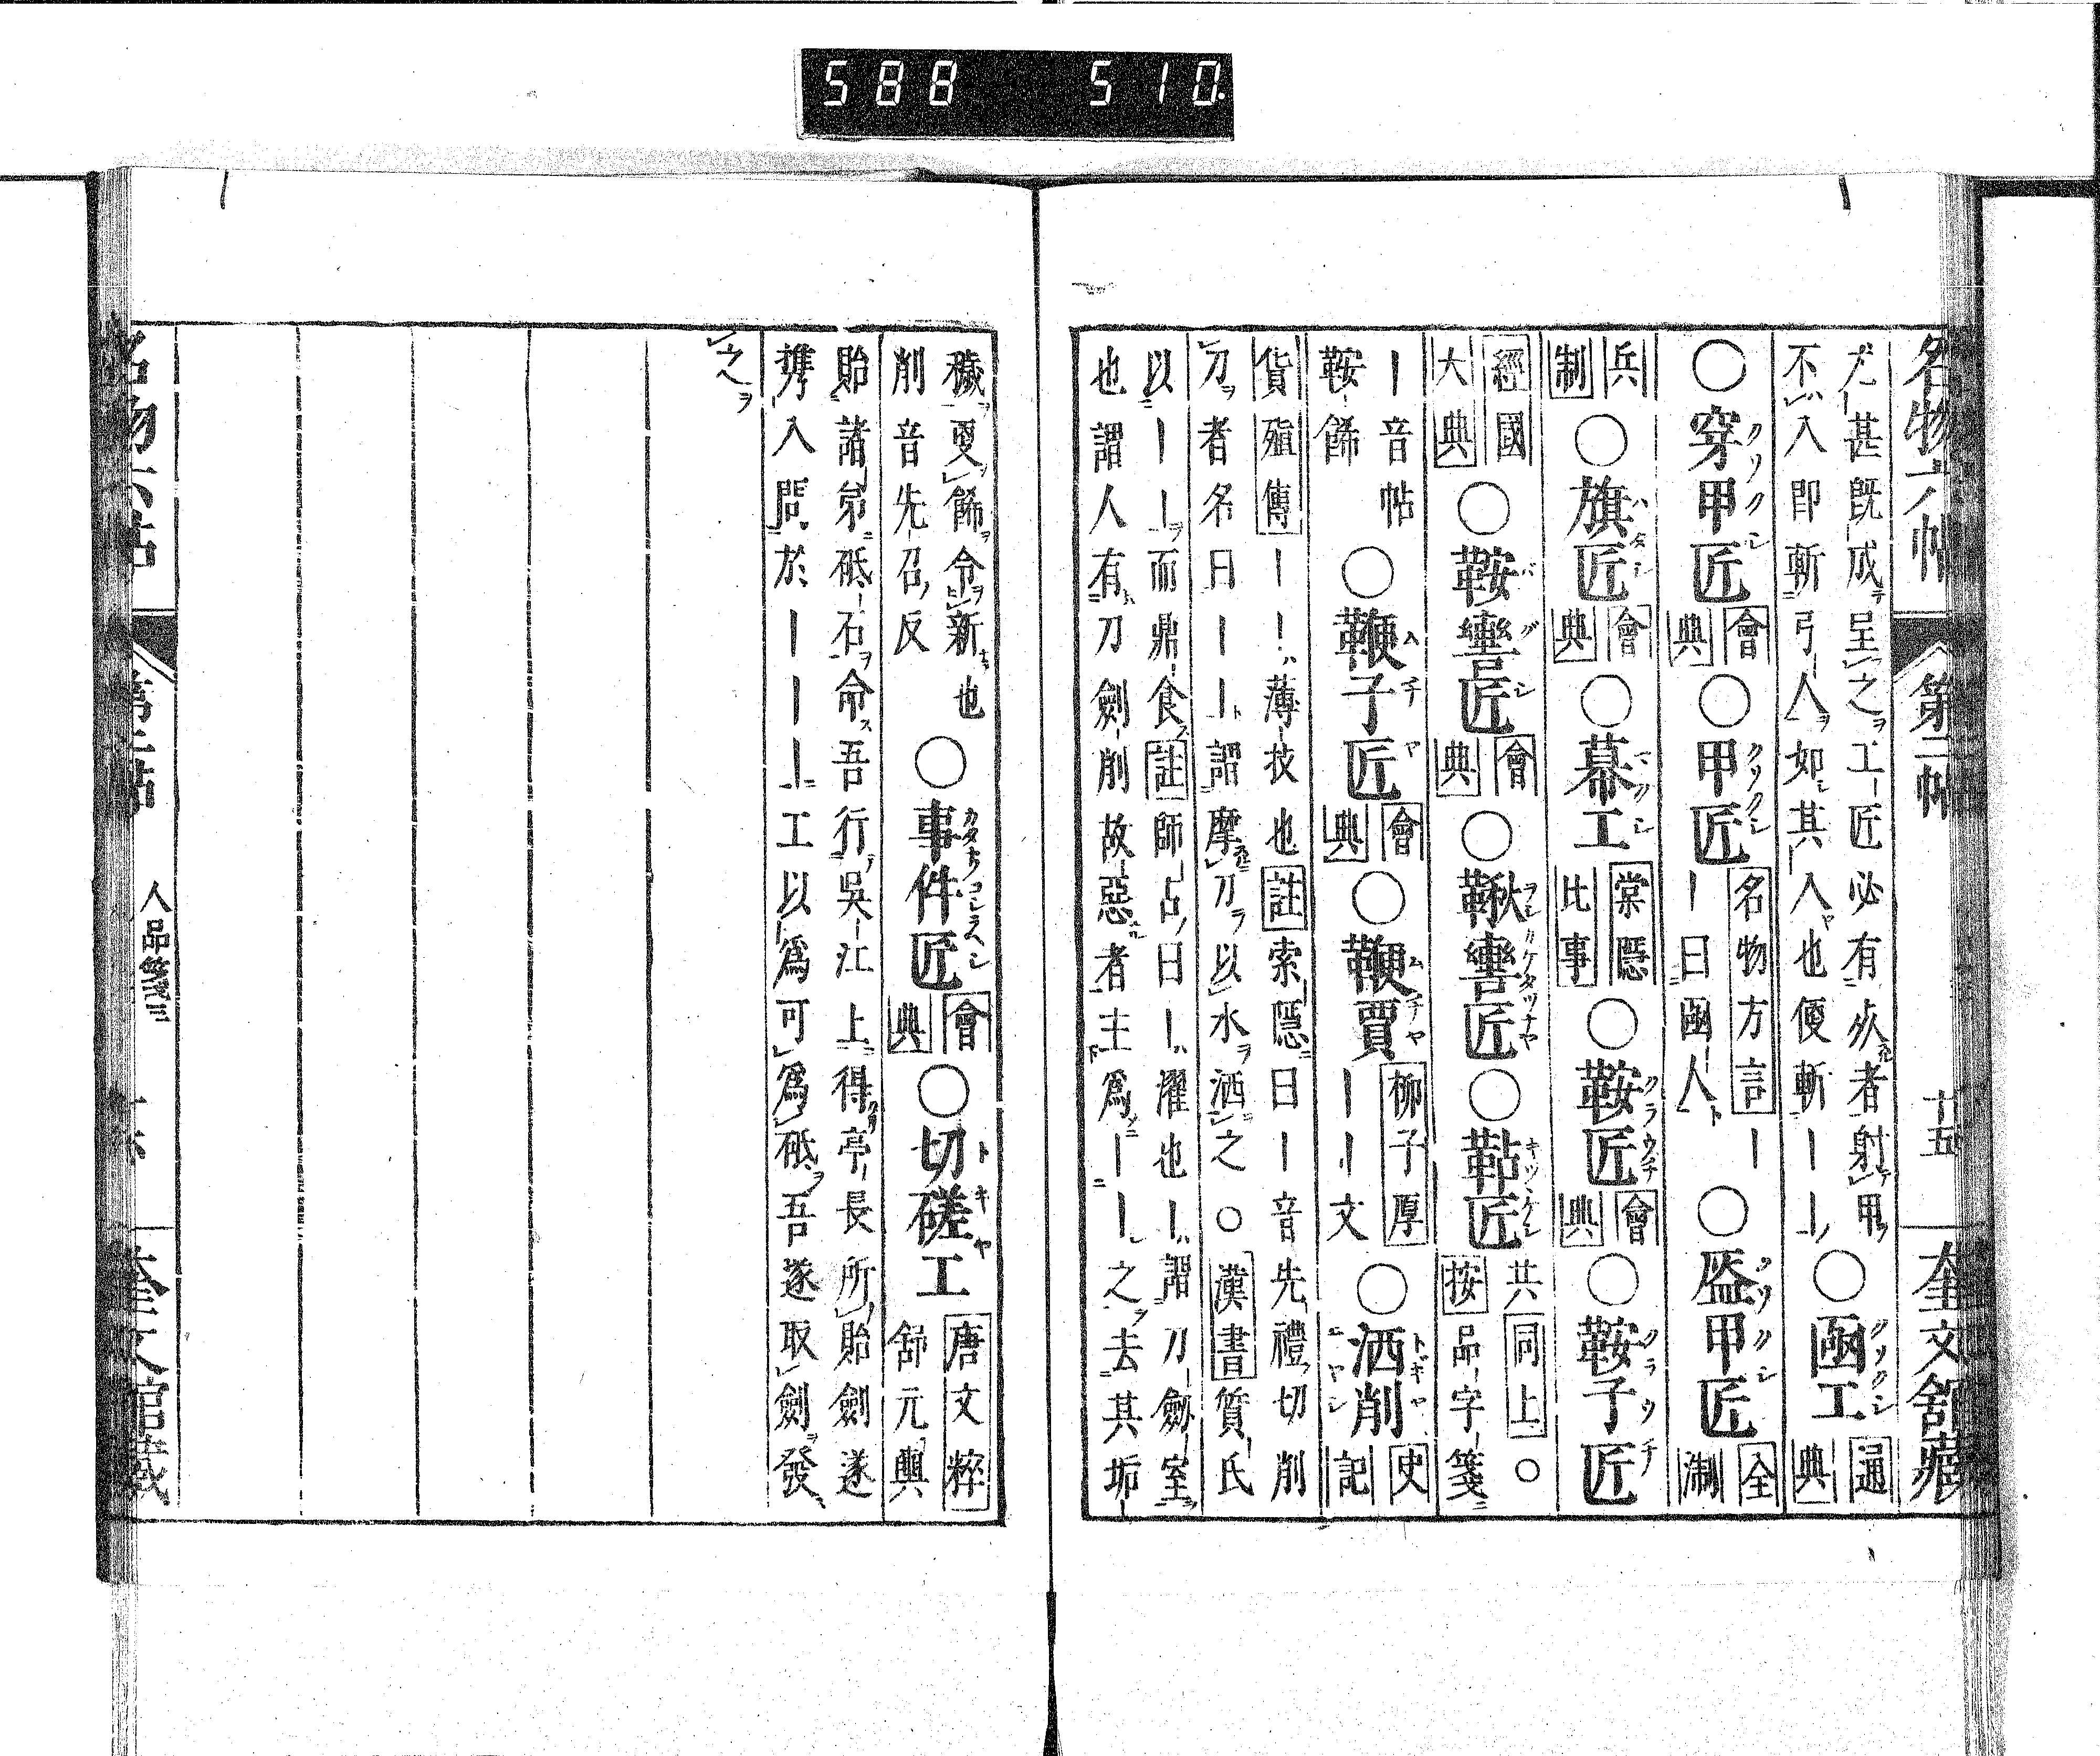 588 510.
名物六帖 第二帖 十五 奎文館藏
尤甚既成呈之工匠必有死者射甲
不入即斬弓人如其入也便斬丨丨○函工通典
○穿甲匠會典○甲匠名物方言丨
丨曰函人○盔甲匠全淛
兵制○旗匠會典○幕工棠隱比事○鞍匠會典○鞍子匠
經國大典○鞍轡匠會典○鞦轡匠○鞊匠共同上○
按品字箋
丨音帖
鞍飾○鞭子匠會典○鞭賈柳子厚
丨丨文○洒削史記
貨殖傳丨丨薄技也註索隱曰丨音先禮切削
刀者名曰丨丨謂摩刀以水洒之○漢書質氏
以丨丨而鼎食註師古曰丨濯也丨謂刀劒室
也謂人有刀劍削故惡者主爲丨丨之去其垢
穢更飾令新也
削音先召反○事件匠會典○切磋工唐文粹
舒元輿
貽諸弟砥石命吾行吳江上得亭長所貽劍遂
攜入問於丨丨丨工以爲可爲砥吾遂取劍發
之
名物六帖 第二帖 人品箋三 奎文館藏